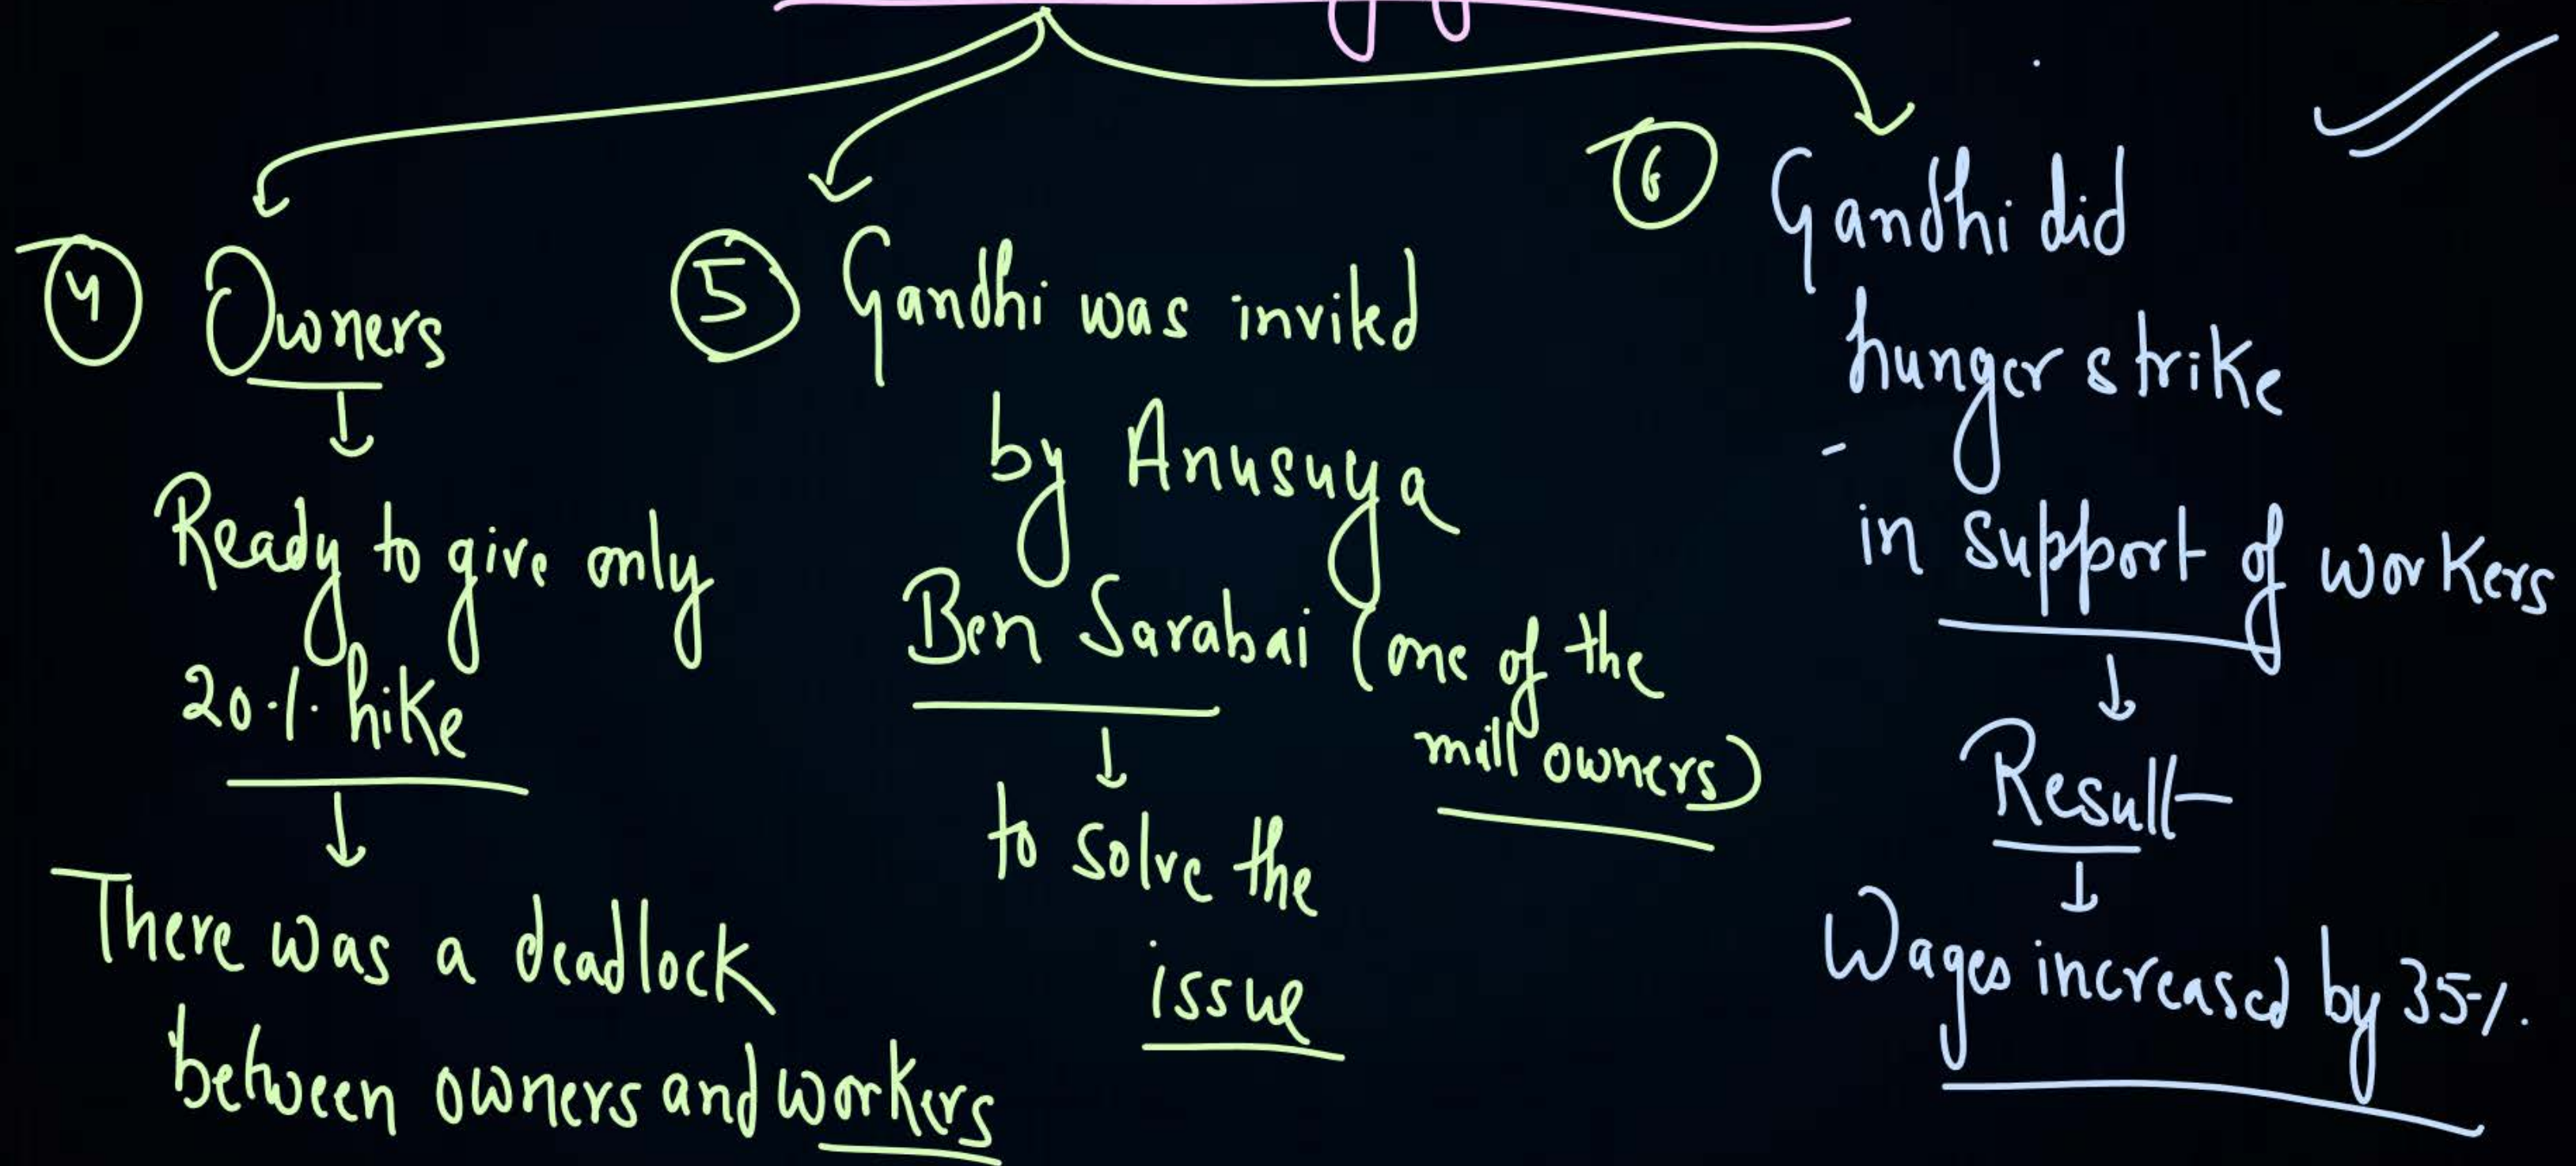 4 Owners
Ready to give only
20% hike
There was a deadlock
between owners and workers
5 Gandhi was invited
by Anusuya
Ben Sarabai (one of the
mill owners)
to solve the
issue
6 Gandhi did
hunger strike
in support of workers
Result
Wages increased by 35%.